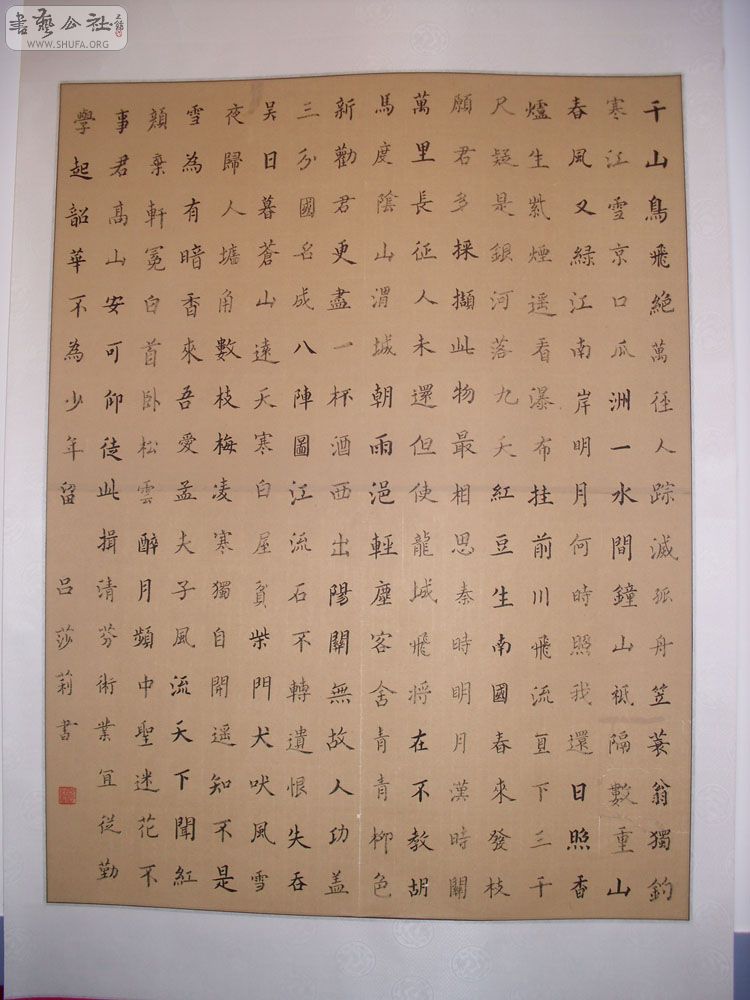 書藝公社
WWW.SHUFA.ORG
千山鳥飛絕萬徑人踪滅孤舟笠蓑翁獨釣
寒江雪京口瓜洲一水間鐘山祗隔數重山
春風又綠江南岸明月何時照我還日照香
爐生紫煙遥看瀑布挂前川飛流直下三千
尺疑是銀河落九天紅豆生南國春來發枝
願君多採擷此物最相思秦時明月漢時關
萬里長征人未還但使龍城飛將在不教胡
馬度陰山渭城朝雨浥輕塵客舍青青柳色
新勸君更盡一杯酒西出陽關無故人功盖
三分國名成八陣圖江流石不轉遺恨失吞
吴日暮蒼山遠天寒白屋貧柴門犬吠風雪
夜歸人墻角數枝梅凌寒獨自開遥知不是
雪為有暗香來吾愛孟夫子風流天下聞紅
顏棄軒冕白首卧松雲醉月頻中聖迷花不
事君高山安可仰徒此揖清芬術業宜從勤
學起韶華不為少年留吕莎莉書